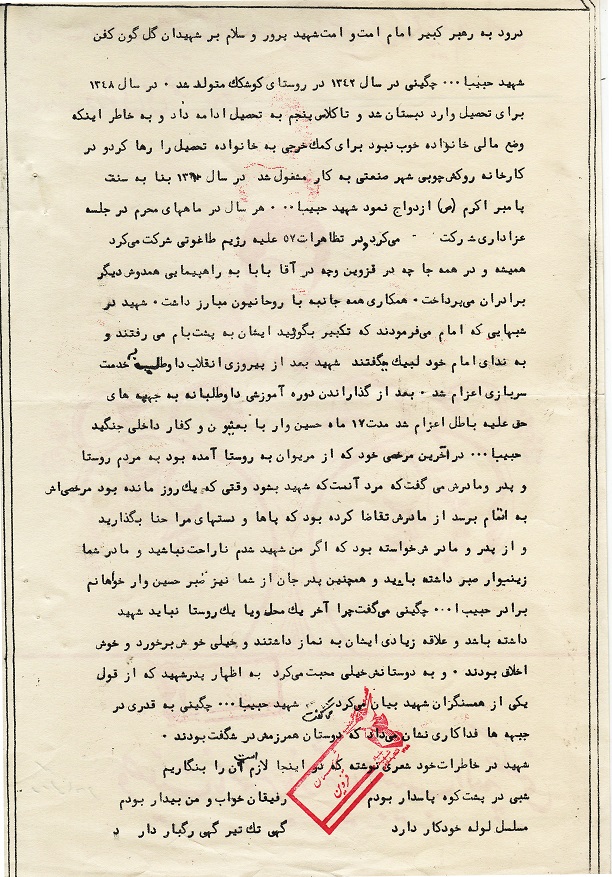 درود به رهبر کبیر امام امت و امت شهید پرور و سلام بر شهیدان گل گون کفن
شهید حبیبا... چگینی در سال ۱۳۴۲ در روستای کوشکک متولد شد . در سال ۱۳۴۸
برای تحصیل وارد دبستان شد و تاکلاس پنجم به تحصیل ادامه داد و به خاطر اینکه
وضع مالی خانواده خوب نبود برای کمک خرجی به خانواده تحصیل را رها کردو در
کارخانه روکش چوبی شهر صنعتی به کار مشغول شد در سال بنا به سنت
پامبر اکرم (ص) ازدواج نمود شهید حبیبا... هر سال در ماههای محرم در جلسه
عزاداری شرکت - میکرد ودر تظاهرات ۵۷ علیه رژیم طاغوتی شرکت میکرد
همیشه و در همه جا چه در قزوین وچه در آقا بابا به راهپیمایی همدوش دیگر
برادران میپرداخت . همکاری همه جانبه با روحانیون مبارز داشت . شهید در
شبهایی که امام میفرمودند که تکبیر بگوئید ایشان به پشت بام می رفتند و
به ندای امام خود لبیک میگفتند شهید بعد از پیروزی انقلاب داوطلب خدمت
سربازی اعزام شد . بعد از گذاراندن دوره آموزشی داوطلبانه به جبهه های
حق علیه باطل اعزام شد مدت ۱۷ ماه حسین وار با بعثیون و کفار داخلی جنگید
حبیبا... در آخرین مرخصی خود که از مریوان به روستا آمده بود به مردم روستا
و پدر ومادرش می گفت که مرد آنست که شهید بشود وقتی که یک روز مانده بود مرخصی اش
به اتمام برسد از مادرش تقاضا کرده بود که پاها و دستهای مرا حنا بگذارید
و از پدر و مادرش خواسته بود که اگر من شهید شدم ناراحت نباشید و مادر شما
زینبوار صبر داشته باشید و همچنین پدر جان از شما نیز صبر حسین وار خواهانم
برادر حبیب ا... چگینی می گفت چرا آخر یک محل ویا یک روستا نباید شهید
داشته باشد و علاقه زیادی ایشان به نماز داشتند و خیلی خوش برخورد و خوش
اخلاق بودند . و به دوستانش خیلی محبت میکرد به اظهار پدرشهید که از قول
یکی از همسنگران شهید بیان میکرد میگفت شهید حبیبا... چگینی به قدری در
جبهه ها فداکاری نشان میداد که دوستان همرزمش در شگفت بودند .
شهید در خاطرات خود شعری نوشته که در اینجا لازم است آن را بنگاریم
شبی در پشت کوه پاسدار بودم رفیقان خواب و من بیدار بودم
مسلسل لوله خودکار دارد گهی تک تیر گهی رگبار دار د
قزوین